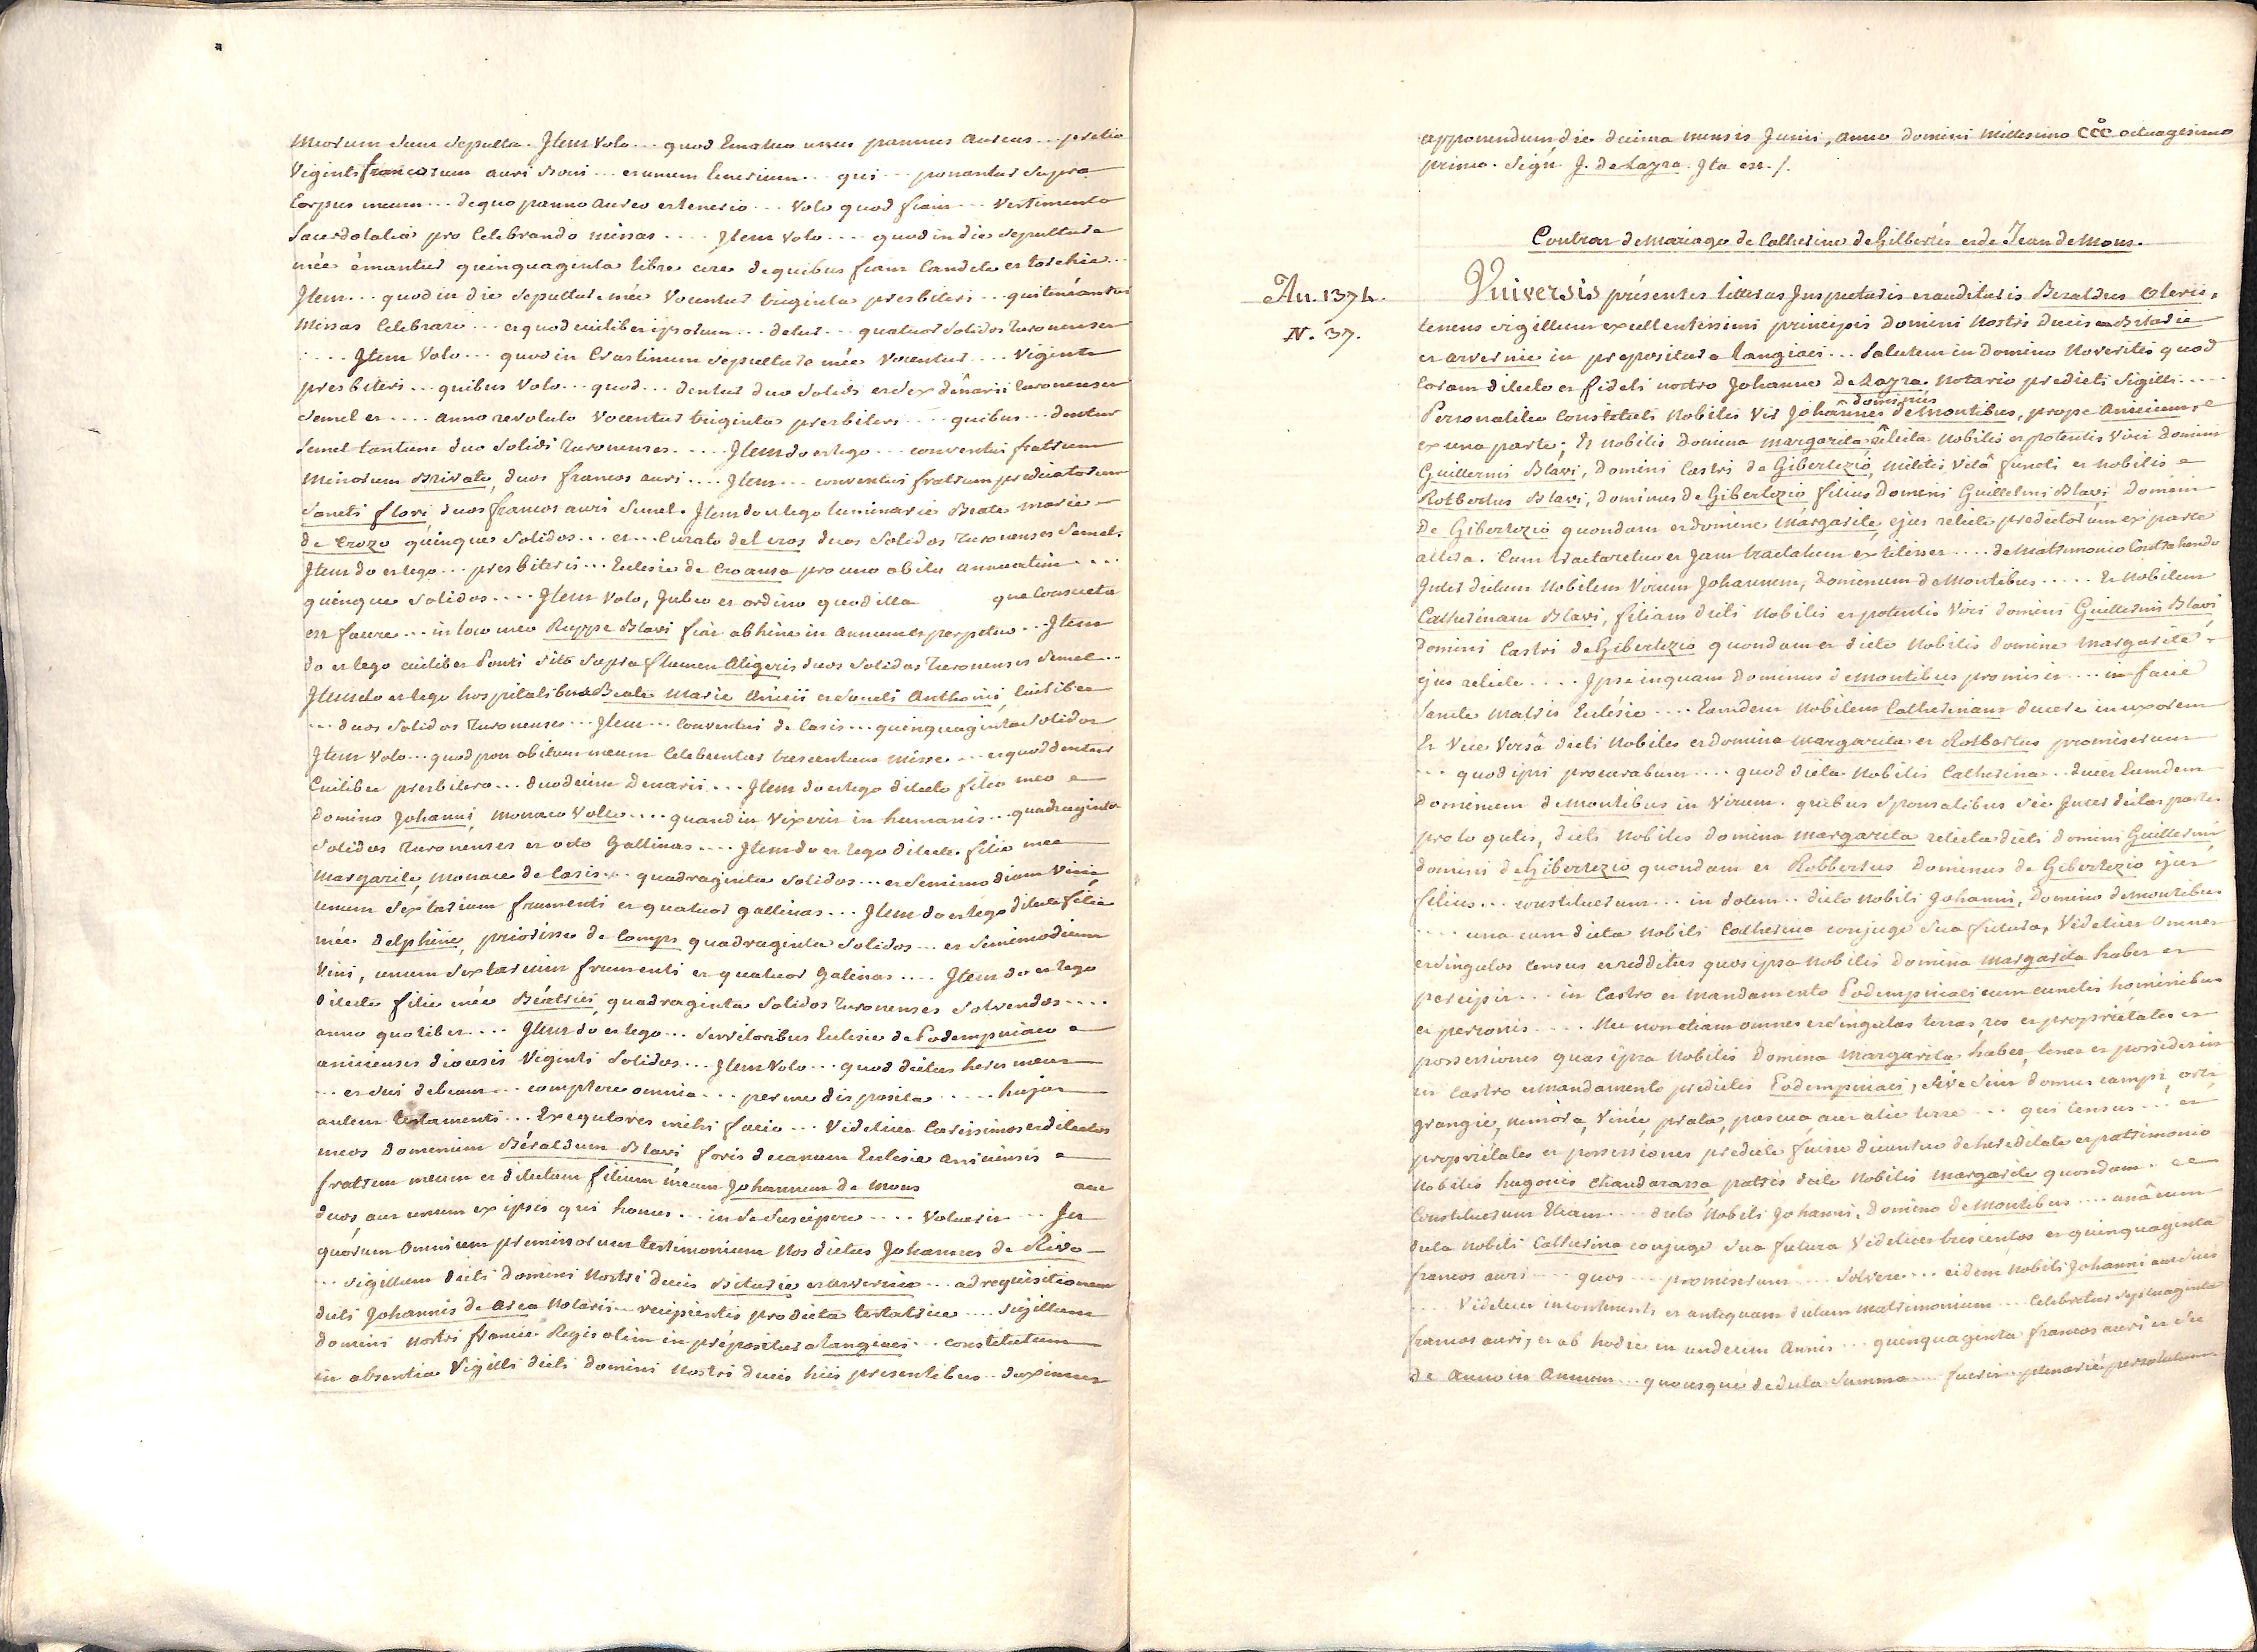 meorum sunt sepulta. Item volo ... quod Ematur unus pannus aureus ... pretio
Viginti francorum auri boni ... et unum lenerium ... qui ... ponantur supra
Corpus meum ... de quo panno aureo et lenerio ... volo quod fiant ... Vestimenta
Sacerdotalia pro Celebrando missas .... Item volo .... quod in die sepulture
mée émantur quinquaginta libre cere de quibus fiant Candele et torchie...
Item ... quod in die sepulture mée Vocentur triginta presbiteri ... qui teneantur
Missas Celebrare ... et quod cuilibet ipsorum ... detur ... quatuor solidos turonenses
.... Item Volo ... quod in Crastinum sepulture mée Vocentur .... Viginti
presbiteri ... quibus Volo ... quod ... dentur duo solidi et sex dênarii turonenses
semel et .... anno revoluto Vocentur triginta presbiteri .... quibus ... dentur
semel tantum duo solidi turonenses ..... Item do et lego ... conventui fratrum
minorum Brivate, duos francos auri .... Item ... conventui fratrum predicatorum
Sancti flori, duos francos auri semel. Item do et lego luminarie Beate marie
de Crozo quinque solidos ... et ... Curato del cros duos solidos turonenses semel.
Item do et lego ... presbiteris ... Eclesie de Croansa pro uno obitu annuatim ....
quinque solidos .... Item volo, Jubeo et ordino quod illa que Consueta
est facere ... in loco meo Ruppe Blavi fiat abhinc in annum et perpetuo ... Item
do et lego cuilibet Ponti sito supra flumen Aligeris duos solidos turonenses semel ...
Item do et lego hospitalibus Beate Marie Anicii et Sancti Anthonii, Cuilibet
... duos solidos turonenses ... Item ... Conventui de Casis ... quinquaginta solidos
Item Volo ... quod post obitum meum Celebrentur trescentum misse ... et quod dentur
Cuilibet presbitero ... duodecim Denarii ... Item do et lego dilecto filio meo
domino Johanni, monaco Volte .... quandiu vixerit in humanis ... quadraginta
solidos turonenses et octo Gallinas .... Item do et lego dilecte filie mee
Margarite, monace de Casis ... quadraginta solidos ... et Semimodium Vini
unum sextarium frumenti et quatuor gallinas ... Item do et lego dilecte filie
mée Delphine, priorisse de Comps quadraginta solidos ... et Semimodium
Vini, unum Sextarium frumenti et quatuor galinas .... Item do et lego
dilecte filie mée Béatrici, quadraginta solidos turonenses solvendos ....
anno quolibet .... Item do et lego ... servitoribus Eclesie de Podempniaco
aniciensis diocesis Viginti solidos ... Item Volo ... quod dictus heres meus
... et sui debeant ... complere omnia ... per me disposita ..... hujus
autem testamenti ... Exequtores mihi facio ... Videlicet Carissimos et dilectos
meos Dominum Béraldum Blavi foris decanum Eclesie Aniciensis
fratrem meum et dilectum filium meum Johannem de Mons aut
duos, aut unum ex ipsis qui honus ... in se suscipere .... Voluerit ... In
quorum Omnium premissorum testimonium Nos dictus Johannes de Rivo
... sigillum dicti domini Nostri ducis Biturie et arvernie ... ad requisitionem
dicti Johannis de Area Notarii recipientis pro dicta testatrice .... sigillum
domini nostri francie Regis olim in prépositura Langiaci ... constitutum
in absentia Sigilli dicti domini Nostri ducis hiis presentibus .. duximus
apponendum, die decima mensis Junii, anno domini millesimo CCC octuagesimo
primo. Sign. J. de Layra. Ita est. /.
Contrat de Mariage de Catherine de Gilbertés et de Jean de Mons.
An. 1374.
N. 37.
Universis présentes litteras Inspecturis et audituris Beraldus Clerici,
tenens sigillum excellentissimi principis Domini Nostri Ducis Biturie
et arvernie in prepositura Langiaci ... Salutem in Domino Noveritis quod
Coram dilecto et fideli nostro Johanne De Layra. Notario predicti Sigilli .....
dominus
Personaliter Constituti Nobilis Vir Johannes de Montibus, prope Anicium,
ex una parte; Et Nobilis Domina Margarita, rêlicta Nobilis et potentis Viri Domini
Guillermi Blavi, Domini Castri de Gibertezio, militis, Vitâ functi et Nobilis
Rotbertus Blavi, dominus de Gibertezio filius Domini Guillelmi Blavi Domini
De Gibertezio quondam et domine Margarite, ejus relicte predictorum ex parte
altera. Cum tractaretur et Jam tractatum extitisset .... de Matrimonio Contrahendo
Inter dictum Nobilem Virum Johannem, Dominum de Montibus ..... Et Nobilem
Catherinam Blavi, filiam dicti Nobilis et potentis Viri Domini Guillermi Blavi
Domini Castri de Gibertezio quondam et dicte Nobilis Domine Margarite
ejus relicte .... Ipse inquam Dominus de Montibus promisit .... in facie
Sancte Matris Eclésie .... Eamdem Nobilem Catherinam ducere in uxorem
Et Vice Versâ dicti Nobiles et domina Margarita et Rotbertus promiserunt
... quod ipsi procurabunt .... quod dicta Nobilis Catherina .. ducet Eumdem
Dominum de Montibus in Virum. quibus Sponsalibus sic Inter dictas partes
proloqutis, dicti Nobiles Domina Margarita relicta dicti Domini Guillermi
domini de Gibertezio quondam et Robbertus Dominus de Gibertezio ejus
filius ... constituerunt ... in dotem .. dicto Nobili Johanni, Domino de Montibus
.... una cum dicta Nobili Catherina conjuge sua futura, Videlicet Omnes
et singulos Census et redditus quos ipsa Nobilis Domina Margarita habet et
percipit ... in Castro et Mandamento Podempniaci cum cunctis hominibus
et personis .... Nec non etiam omnes et singulas terras, res et propriétates et
possessiones quas ipsa Nobilis Domina Margarita habet, tenet et possidet in
in Castro et Mandamento predictis Podempniaci, sive sint domus campi, orti,
grangie, nemora, Vinée, prata, pascua, aut alie terre ... qui Census ... et
propriétates et possessiones predicte fuisse dicuntur de hereditate et patrimonio
Nobilis hugonis Chandarassa, patris dicte Nobilis Margarite quondam.
Constituerunt Etiam .... dicto Nobili Johanni, Domino de Montibus .... unâ cum
dicta Nobili Catherina conjuge sua futura Videlicet tris centos et quinquaginta
francos auri .... quos ... promiserunt ... Solvere ... eidem Nobili Johanni aut suis
.... Videlicet incontinenti et antequam dictum Matrimonium .... Celebretur septuaginta
francos auri, et ab hodie in undecim Annis ... quinquaginta francos auri et sic
de Anno in Annum ... quousque dedicta Summa .... fuerit plenarié persolutum